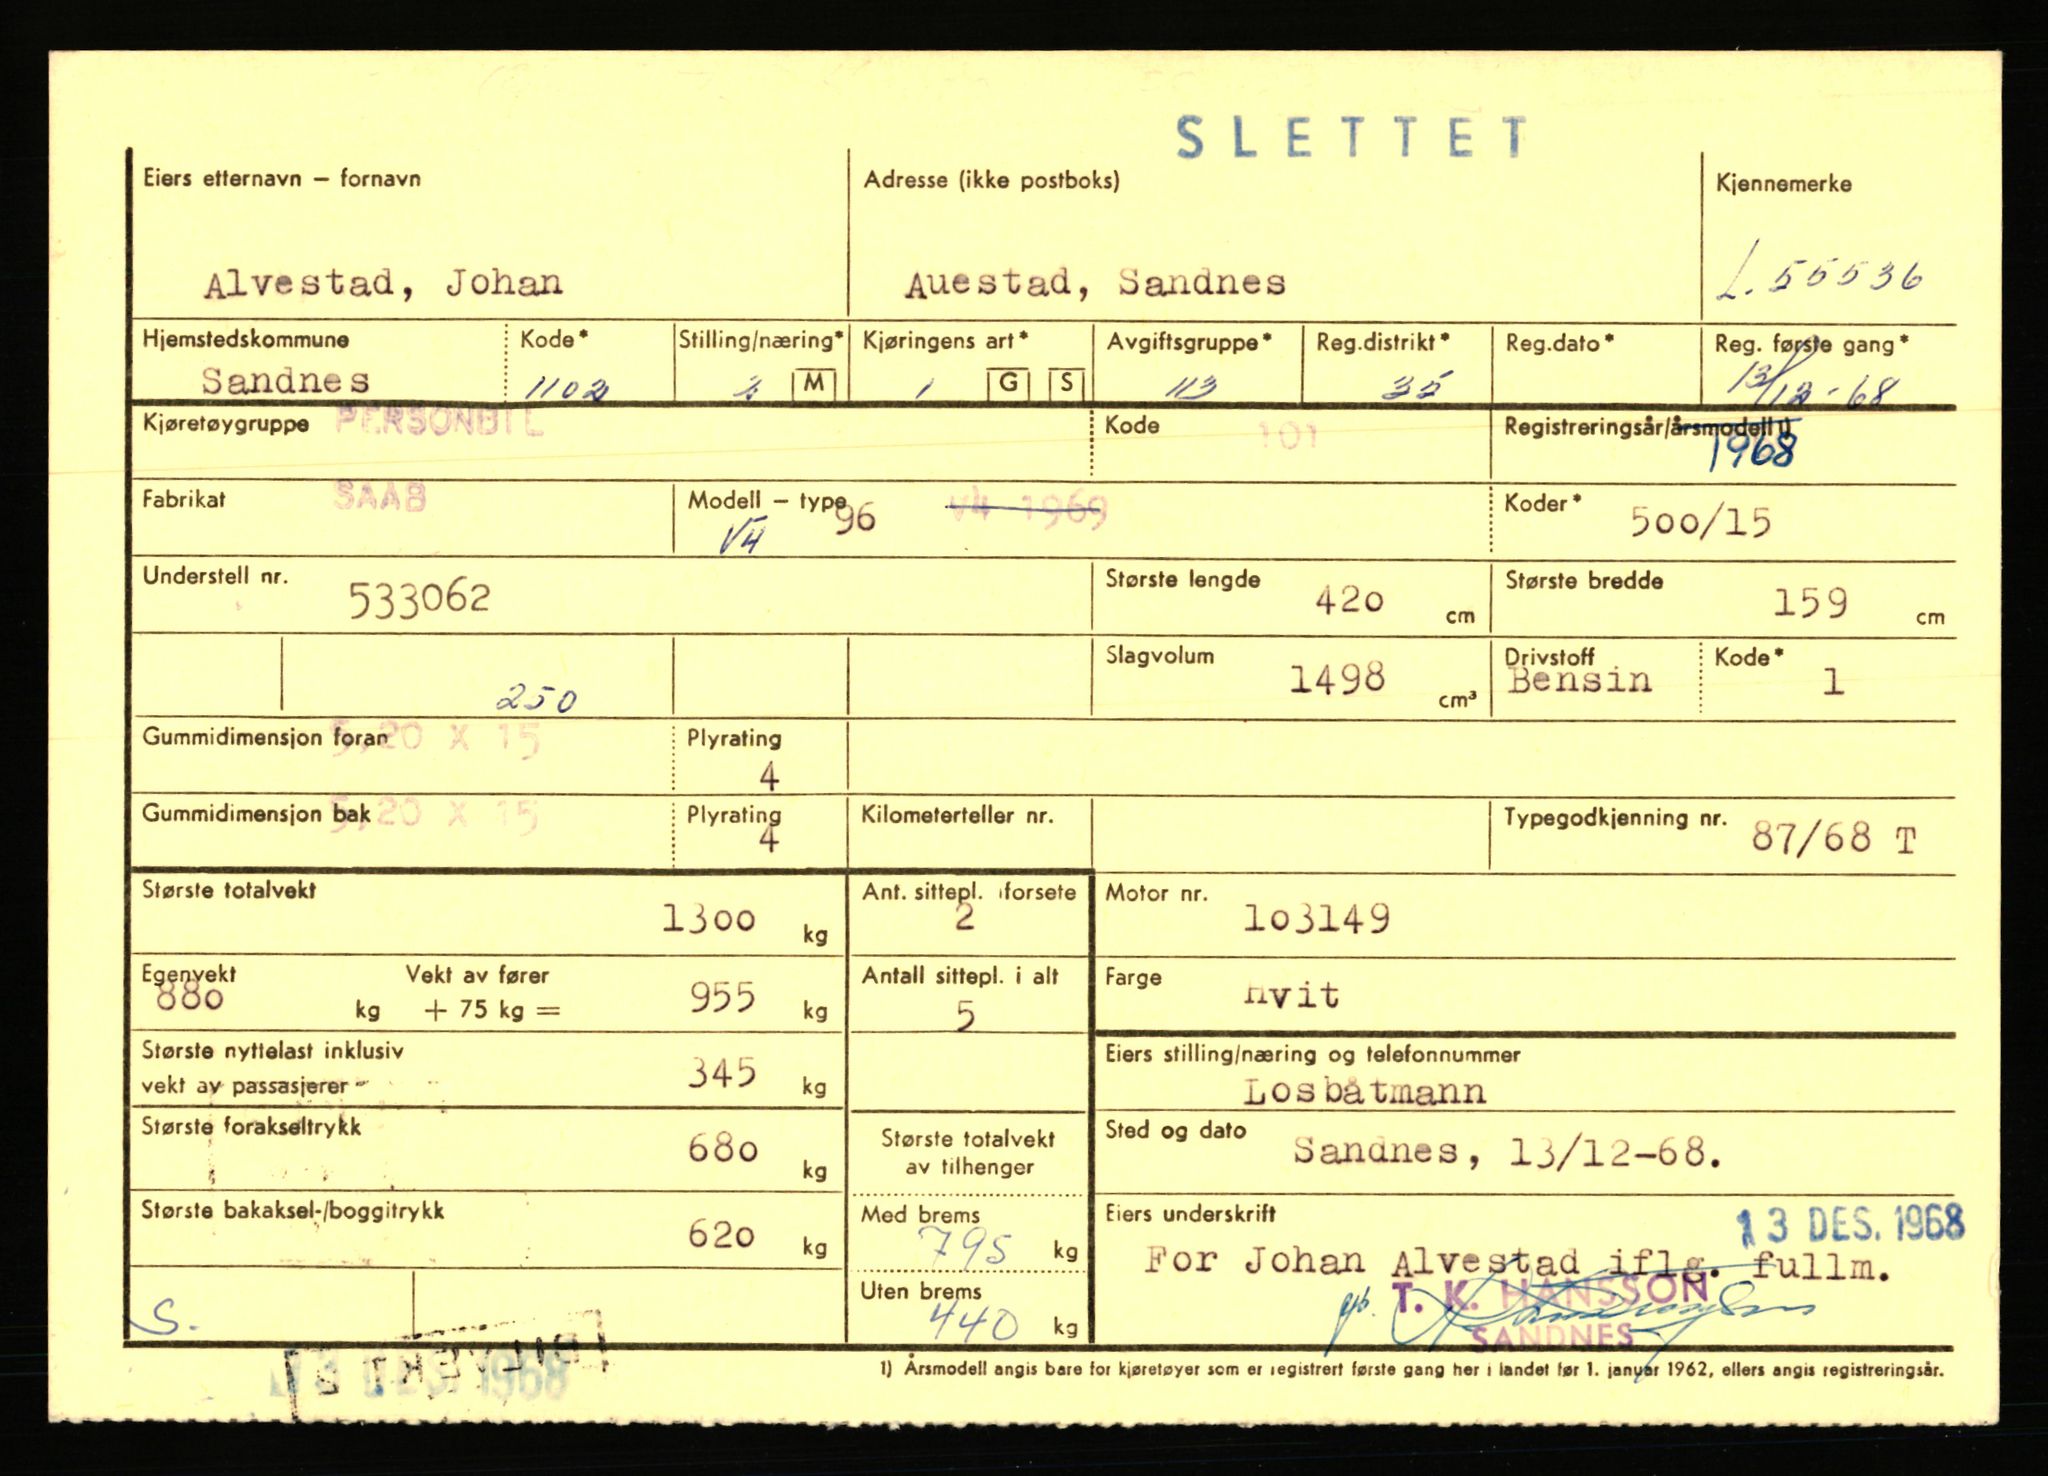 SLETTET
Eiers etternavn – fornavn
Adresse (ikke postboks)
Kjennemerke
Alvestad, Johan
Auestad, Sandnes
L. 55536
Hjemstedskommune
Kode*
Stilling/næring*
Kjøringens art*
Avgiftsgruppe*
Reg.distrikt*
Reg.dato*
Reg. første gang*
Sandnes
1102
2 M
1 G S
113
35
13/12-68
Kjøretøygruppe PERSONBIL
Kode 101
Registreringsår/årsmodell 1)
1968
Fabrikat SAAB
Modell – type 96 V4 1969
V4
Koder* 500/15
Understell nr. 533062
Største lengde 420 cm
Største bredde 159 cm
250
Slagvolum 1498 cm³
Drivstoff Bensin
Kode* 1
Gummidimensjon foran 5,20 X 15
Plyrating 4
Gummidimensjon bak 5,20 X 15
Plyrating 4
Kilometerteller nr.
Typegodkjenning nr. 87/68 T
Største totalvekt 1300 kg
Ant. sittepl. i forsete 2
Motor nr. 103149
Egenvekt 880 kg
Vekt av fører + 75 kg = 955 kg
Antall sittepl. i alt 5
Farge Hvit
Største nyttelast inklusiv
vekt av passasjerer 345 kg
Eiers stilling/næring og telefonnummer
Losbåtmann
Største forakseltrykk 680 kg
Største totalvekt
av tilhenger
Sted og dato Sandnes, 13/12-68.
Største bakaksel-/boggitrykk 620 kg
Med brems 795 kg
Eiers underskrift
13 DES. 1968
For Johan Alvestad iflg. fullm.
Uten brems 440 kg
S.
T. K. HANSSON
SANDNES
13 DES. 1968
1) Årsmodell angis bare for kjøretøyer som er registrert første gang her i landet før 1. januar 1962, ellers angis registreringsår.